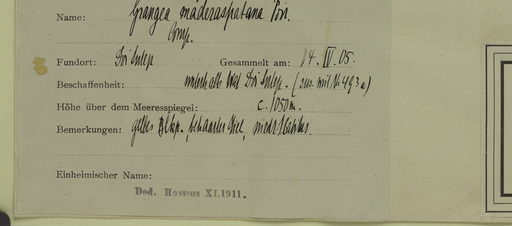 Name: Grangea maderaspatana Poir.
Comp.
Fundort: Doi Sutep Gesammelt am: 14. IV. 05.
Beschaffenheit: unterhalb Wat Doi Sutep. (zus. mit N. 493a)
Höhe über dem Meeresspiegel: c. 1050 m.
Bemerkungen: gelbes Blkp., behaarter Stiel,
Einheimischer Name:
Ded. Hosseus XI.1911.